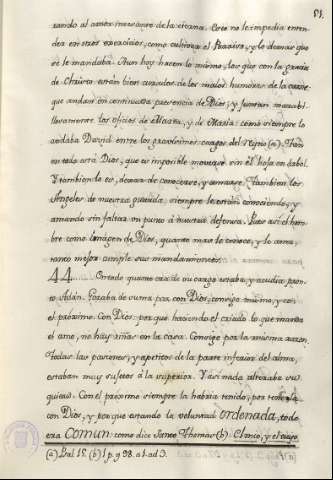 51.
rando al amor incesante de la eterna. Esto no le impedia enten-
der en otros exercicios, como cultivar el Paraiso, y lo demas que
se le mandaba. Aun hoy hacen lo mismo, los que con la gracia
de Christo estàn bien curados de los malos humores de la carne
que andan en continua presencia de Dios, y juntan marabi-
llosamente los oficios de Marta, y de Maria: como siempre lo
andaba David entre los gravisimos cargos del Reyno (a).
en todo està Dios, que es imposible moverse sin èl hoja en arbol.
Y tambien lo es, dexar de conocerse, y amarse. Tambien los
Angeles de nuestra guarda, siempre le estàn conociendo, y
amando sin faltar un punto á nuestra defensa. Pues asi el hom-
bre como Imàgen de Dios, quanto mas le conoce, y lo ama,
tanto mejor cumple sus mandamientos.
44. En todo quanto caía de su cargo estaba, y acudia pron-
to Adán. Gozaba de suma paz con Dios, consigo mismo, y con
el próximo. Con Dios: por que haciendo el criado lo que manda
el amo, no hay riñas en la casa. Consigo por la misma razon.
Todas las pasiones, y apetitos de la parte inferior del alma,
estaban muy sujetos á la superior. Y asi nada alteraba su
quietud. Con el próximo siempre la habria tenido, por tenerla
con Dios, y por que estando la voluntad ordenada, todo
era comun como dice Santo Thomas (b). El mio, y el tuyo
(a) Psal. 15. (b) 1. p. q. 98. a. 1. ad 3.